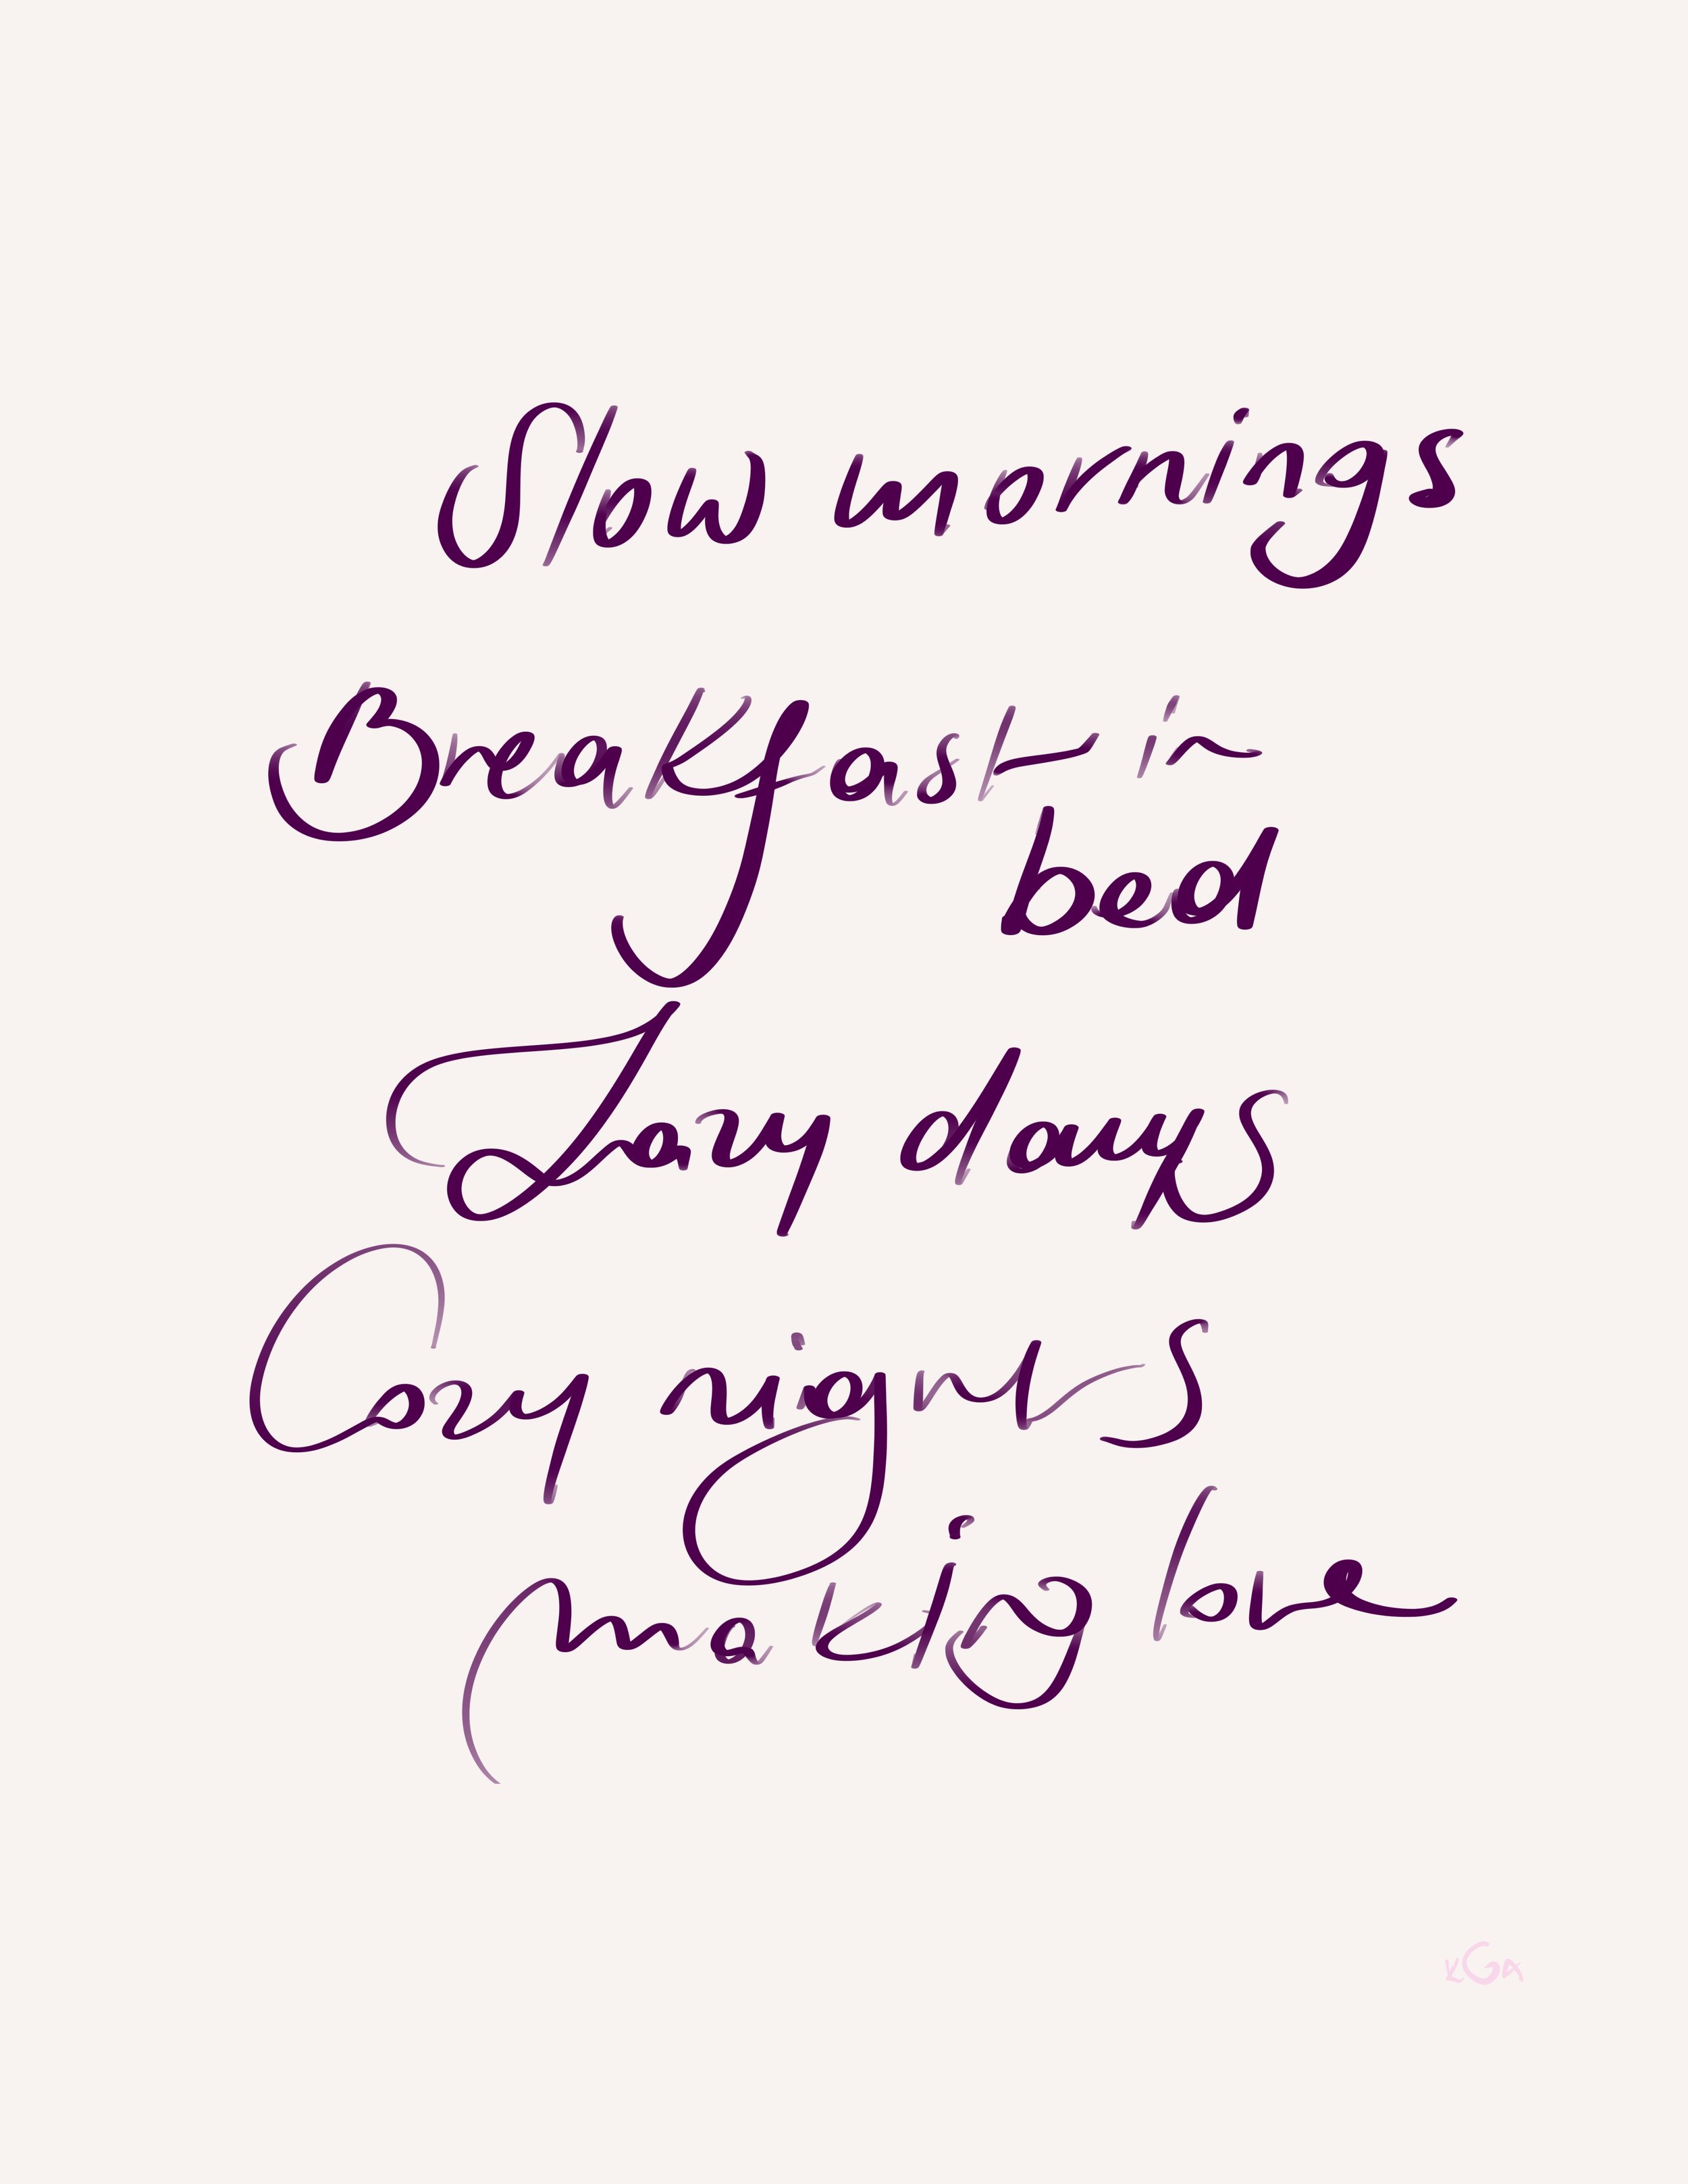 Slow mornings
Breakfast in
bed
Lazy days
Cozy nights
making love
KGA